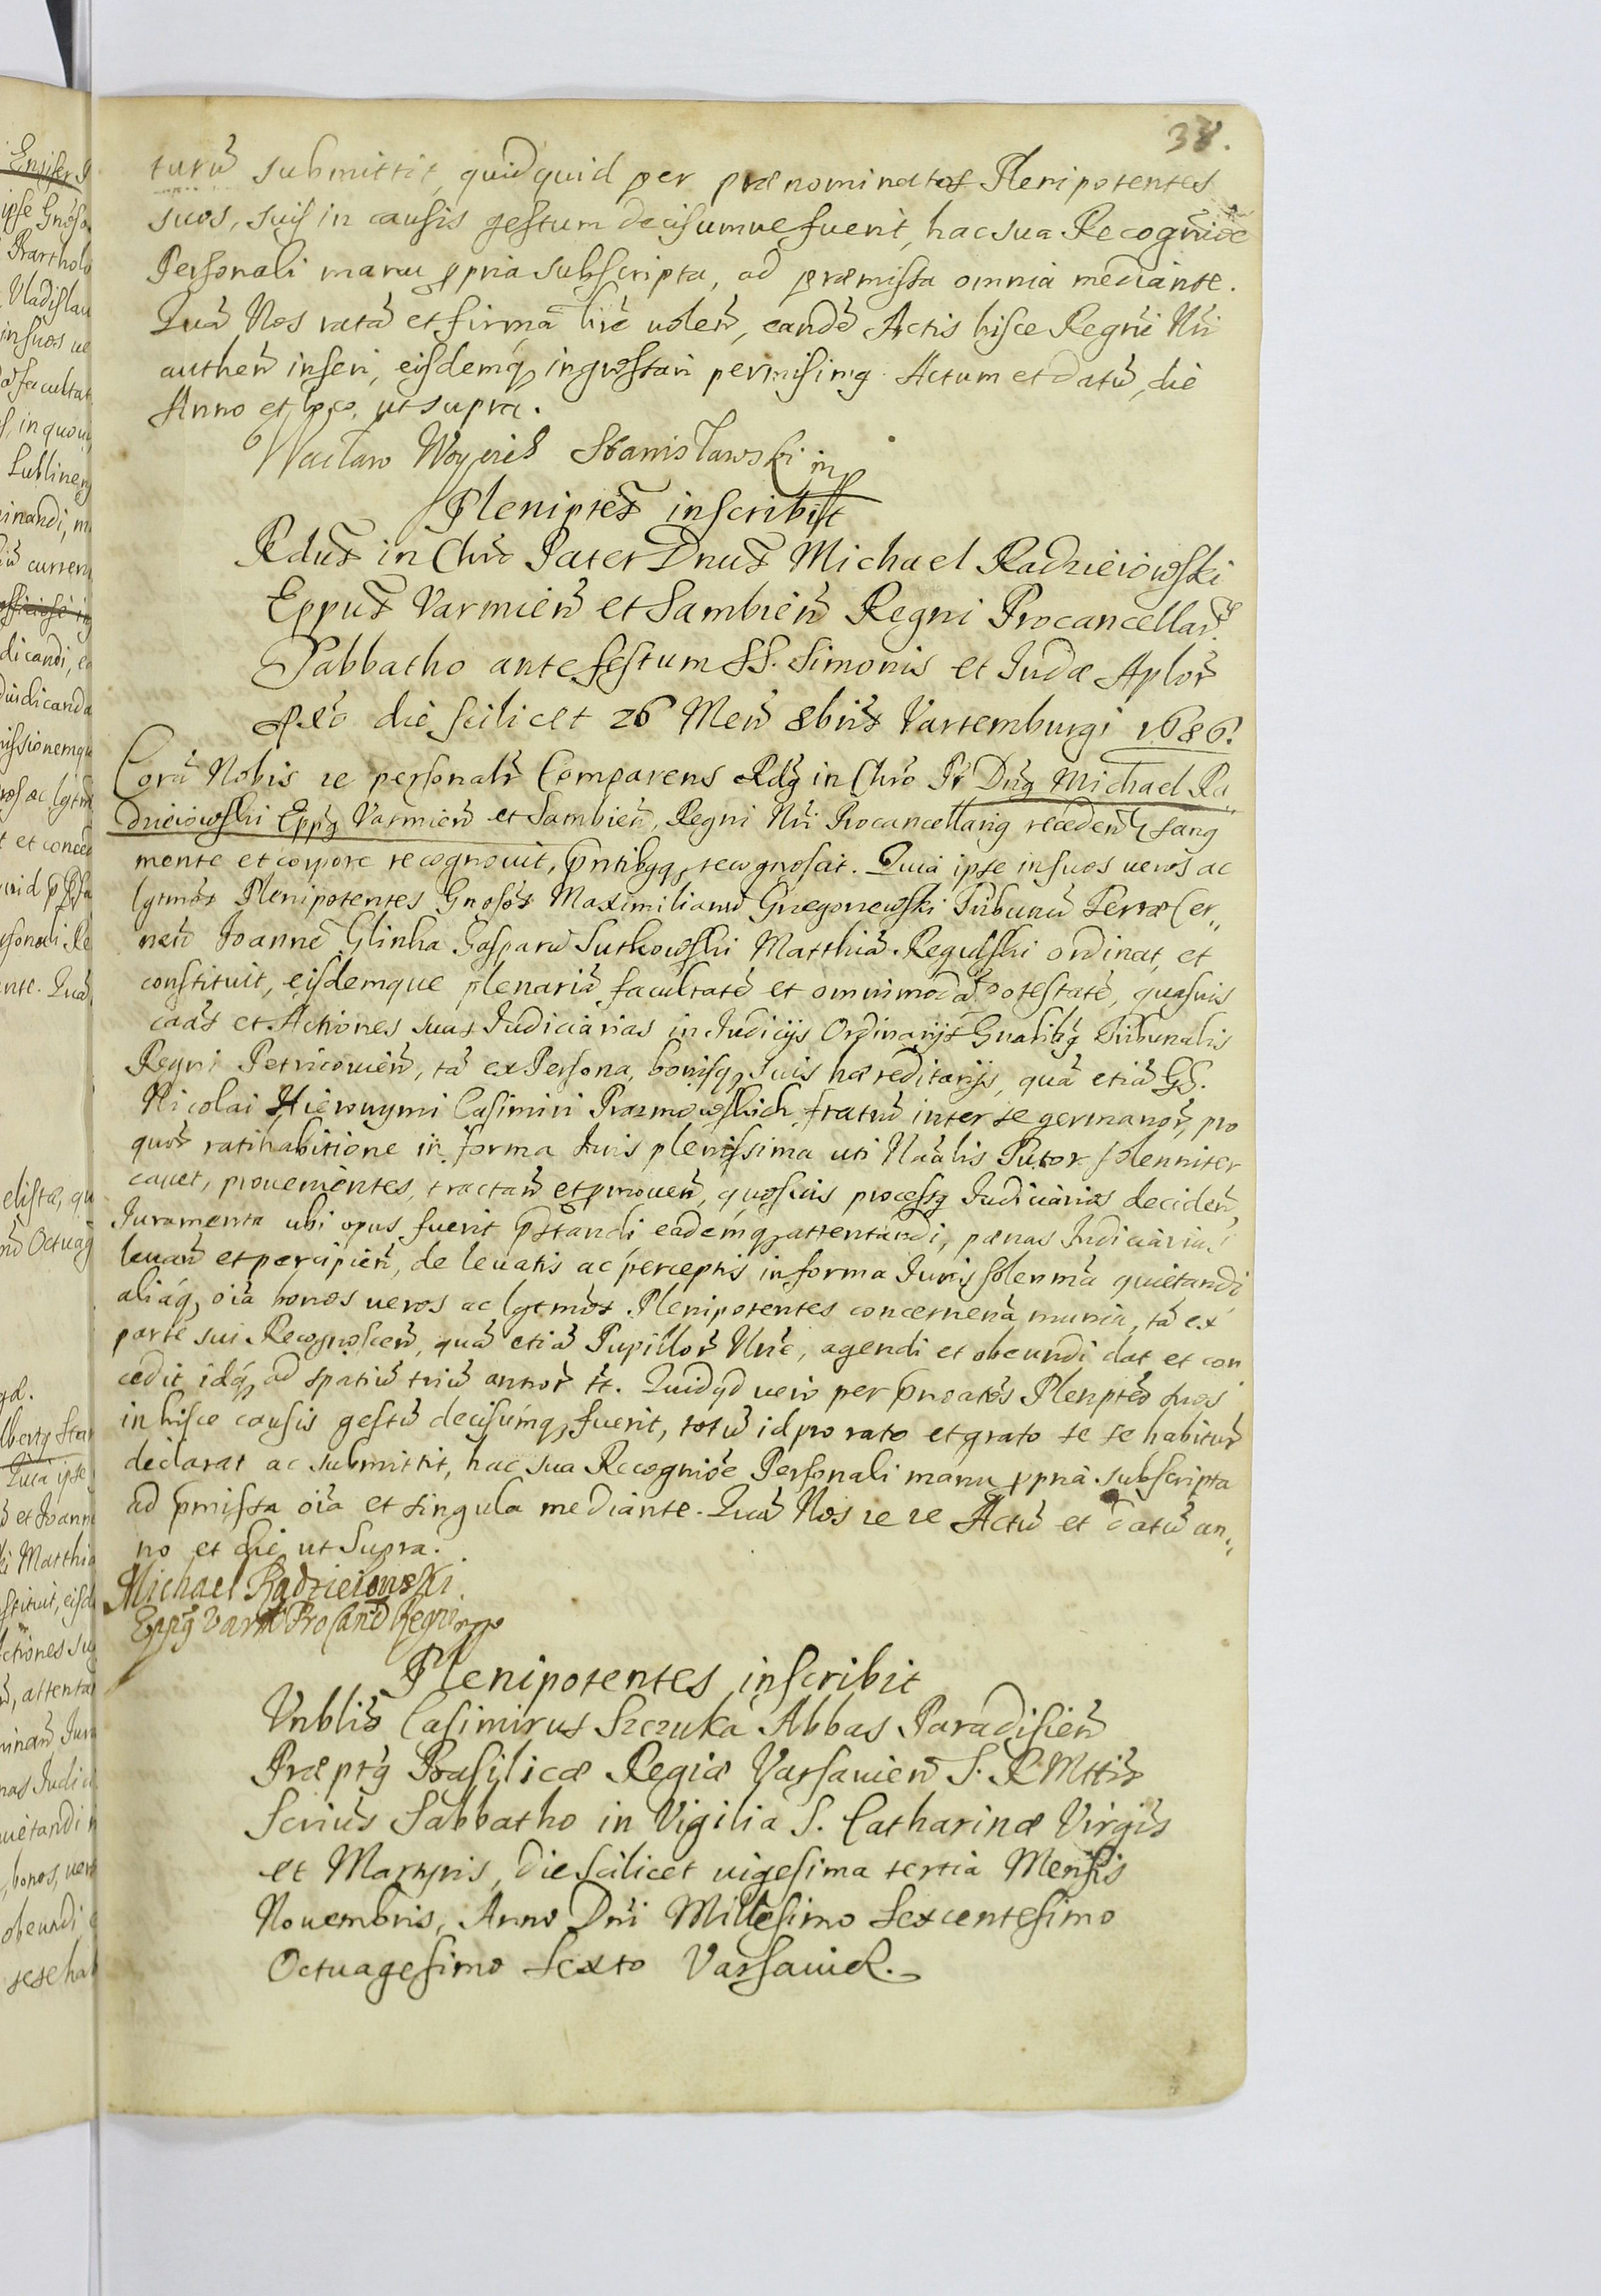 38.
turū submittit, quidquid per prænominatos Plenipotentes
suos, suis in causis gestum decisumue fuerit, hac sua Recogn̄ioē
Personali manu ꝓpria subscripta, ad præmissa omnia mediante.
Quā Nos ratā et firmā h̄re uolen̄, eandē Actis hisce Regni Nr̄i
authen̄ inseri, eisdemq; ingrossari permisimꝰ. Actum et datū, die
Anno et loco, ut supra.
Wacław Woyciech Stanisławski mp
Plenipt̄es inscribit
Rdus̄ in Chr̄o Pater Dnus̄ Michael Radzieiowski
Eppus̄ Varmien̄ et Sambien̄ Regni Procancellarꝰ.
Sabbatho ante festum SS. Simonis et Judæ Aplor̄
die scilicet 26 Men̄ 8br̄is Vartemburgi 1686.
Corā Nobis re personalr̄ Comparens Rdꝰ in Chr̄o Pr̄ Dn̄ꝰ Michael Ra„
dzieiowski Eppꝰ Varmien̄ et Sambien̄, Regni Nr̄i Procancellariꝰ recedenꝰ sanꝰ
mente et corpore recognouit, p̄ntibꝰq; recognoscit. Quia ipse in suos ueros ac
lgtmos̄ Plenipotentes Gnosos̄ Maximilianū Gregorzewski Tribunū Terræ Cer„
nen̄ Joannē Glinka Gasparū Sutkowski Matthiā Regulski ordinat, et
constituit, eisdemque plenariā facultatē et omnimodā potestatē, quasuis
caās et Actiones suas Judiciarias in Judicijs Ordinarijs Gnalibꝰ Tribunalis
Regni Petricouien̄, tā ex Persona, bonisq; suis hæreditarijs, quā etiā GG.
Nicolai Hieronymi Casimiri Prazmowskich fratrū inter se germanor̄, pro
quor̄ ratihabitione in forma Juris plenissima uti Nāalis Tutor solenniter
cauet, prouenientes, tractan̄ et ꝓmouen̄, quosuis processꝰ Judiciarios deciden̄,
Juramenta ubi opus fuerit p̄standi eademq; attentandi, pænas Judiciarias
leuan̄ et percipien̄, de leuatis ac perceptis in forma Juris solenma quietandi
aliaq; oīa bonos ueros ac lgtmos̄ Plenipotentes concernen̄a munia, tā ex
parte sui Recognoscen̄, quā etiā Pupillor̄ Nr̄e, agendi et obeundi dat et con
cedit idq; ad spatiū triū annor̄ tt. Quidqd uero per p̄noatos Plenpt̄es suos
in hisce causis gestū decisumq; fuerit, totū id pro rato et grato se se habitur̄
declarat ac submittit, hac sua Recognioē Personali manu ꝓpria subscripta
ad p̄missa oīa et singula mediante. Quā Nos re re Actū et datū an„
no et die ut Supra.
Michael Radzieiowski
Eppꝰ Varm̄ Pro Canc̄ Regni mpp
Plenipotentes inscribit
Vnblis̄ Casimirus Szczuka Abbas Paradisien̄
Præptꝰ Basilicæ Regiæ Varsauien̄ S. R Mttis̄
Scrius̄ Sabbatho in Vigilia S. Catharinæ Virgis̄
et Martyris, die scilicet uigesima tertia Mensis
Nouembris, Anno Dn̄i Millesimo Sexcentesimo
Octuagesimo Sexto Varsauiæ.